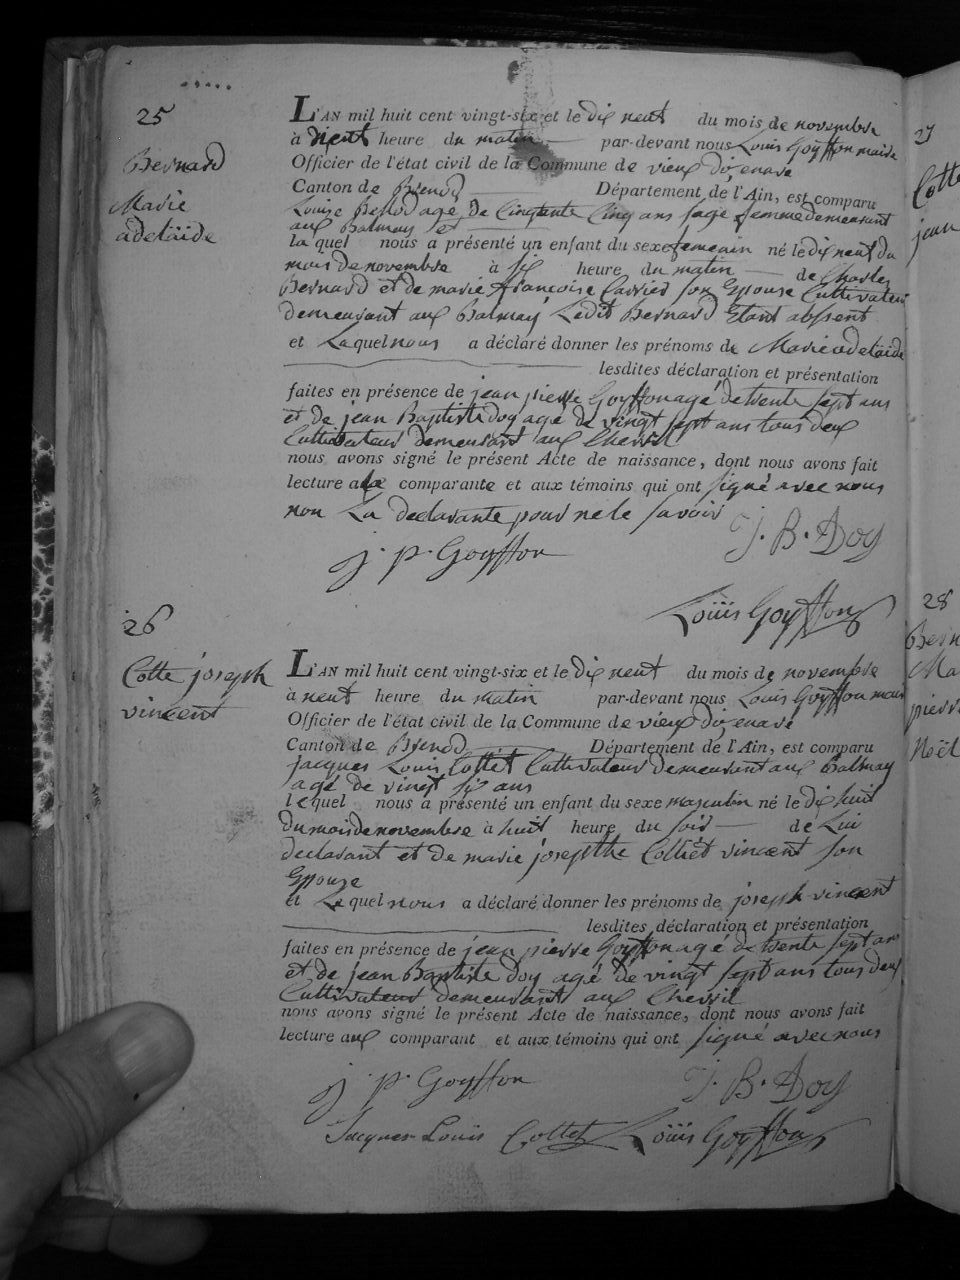 25
Bernard
Marie
adelaïde
L'AN mil huit cent vingt-six et le dix neuf du mois de novembre
à neuf heure du matin par-devant nous Louis Goyffon maire
Officier de l'état civil de la Commune de vieux dizenave
Canton de Brenod Département de l'Ain, est comparu
Louise Benod agé de Cinquante Cinq ans sage femme demeurant
aux Balmay et
la quel nous a présenté un enfant du sexe femenin né le dix neuf du
mois de novembre à six heure du matin de Charles
Bernard et de marie françoise Carrier son Epouse Cultivateur
demeurant aux Balmay Ledit Bernard Etant absent
et Laquel nous a déclaré donner les prénoms de Marie adelaïde
lesdites déclaration et présentation
faites en présence de jean pierre Goyffon agé de trente sept ans
et de jean Baptiste Doy agé de vingt sept ans tous deux
Cultivateur demeurant aux Chevril
nous avons signé le présent Acte de naissance, dont nous avons fait
lecture a la comparante et aux témoins qui ont signé avec nous
non La declarante pour ne le savoir
j. p. Goyffon J. B. Doy
Louis Goyffon
26
Cotte joseph
vincent
L'AN mil huit cent vingt-six et le dix neuf du mois de novembre
à neuf heure du matin par-devant nous Louis Goyffon maire
Officier de l'état civil de la Commune de vieux dizenave
Canton de Brenod Département de l'Ain, est comparu
jacques Louis Collet Cultivateur demeurant aux Balmay
agé de vingt six ans
lequel nous a présenté un enfant du sexe masculin né le dix huit
du mois de novembre à huit heure du soir de Lui
declarant et de marie josephthe Colliet vincent son
Epouse
et Lequel nous a déclaré donner les prénoms de joseph vincent
lesdites déclaration et présentation
faites en présence de jean pierre Goyffon agé de trente sept ans
et de jean Baptiste Doy agé de vingt sept ans tous deux
Cultivateur demeurant aux Chevril
nous avons signé le présent Acte de naissance, dont nous avons fait
lecture aux comparant et aux témoins qui ont signé avec nous
j. p. Goyffon J. B. Doy
Jacques Louis Collet Louis Goyffon
27
Cotte
jean
28
Bern
Ma
pierre
Noël